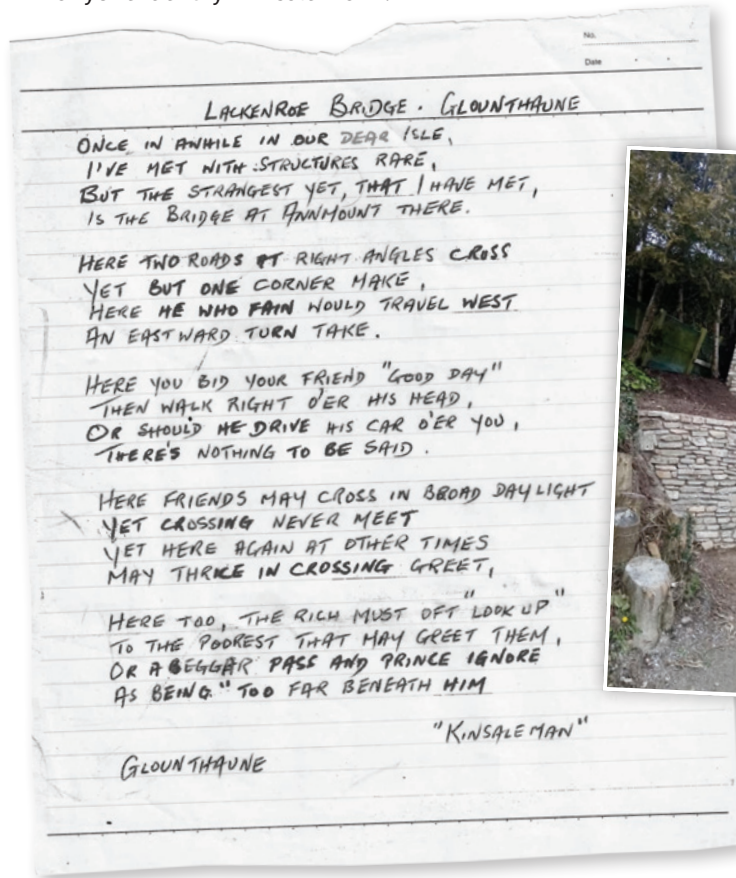 No.
Date
LACKENROE BRIDGE. GLOUNTHAUNE
ONCE IN AWHILE IN OUR DEAR ISLE,
I'VE MET WITH STRUCTURES RARE,
BUT THE STRANGEST YET, THAT I HAVE MET,
IS THE BRIDGE AT ANNMOUNT THERE.
HERE TWO ROADS AT RIGHT ANGLES CROSS
YET BUT ONE CORNER MAKE,
HERE HE WHO FAIN WOULD TRAVEL WEST
AN EASTWARD TURN TAKE.
HERE YOU BID YOUR FRIEND "GOOD DAY"
THEN WALK RIGHT O'ER HIS HEAD,
OR SHOULD HE DRIVE HIS CAR O'ER YOU,
THERE'S NOTHING TO BE SAID.
HERE FRIENDS MAY CROSS IN BROAD DAYLIGHT
YET CROSSING NEVER MEET
YET HERE AGAIN AT OTHER TIMES
MAY THRICE IN CROSSING GREET,
HERE TOO, THE RICH MUST OFT "LOOK UP"
TO THE POOREST THAT MAY GREET THEM,
OR A BEGGAR PASS AND PRINCE IGNORE
AS BEING "TOO FAR BENEATH HIM
"KINSALE MAN"
GLOUNTHAUNE